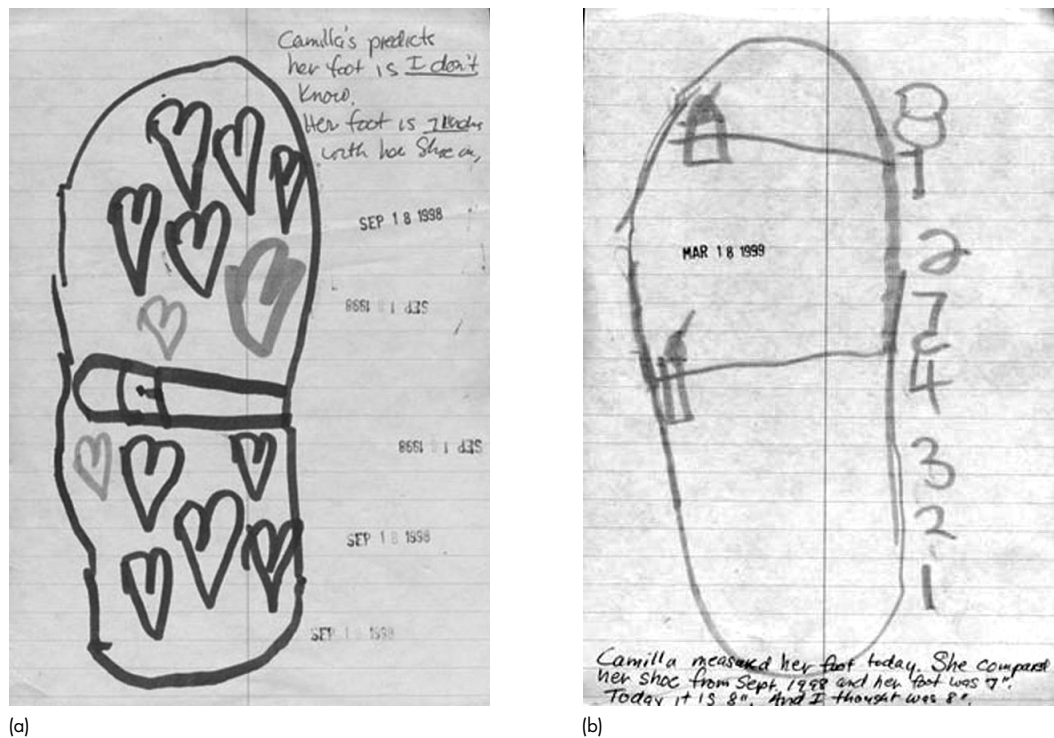 Camilla's predicts
her foot is I don't
know.
Her foot is
with her Shoe on,
SEP 18 1998
SEP 18 1998
SEP 18 1998
SEP 18 1998
SEP 18 1998
(a)
8
7
2
7
4
3
2
1
MAR 18 1999
Camilla measured her foot today. She compared
her shoe from Sept. 1998 and her foot was 7".
Today it is 8". And I thought was 8".
(b)